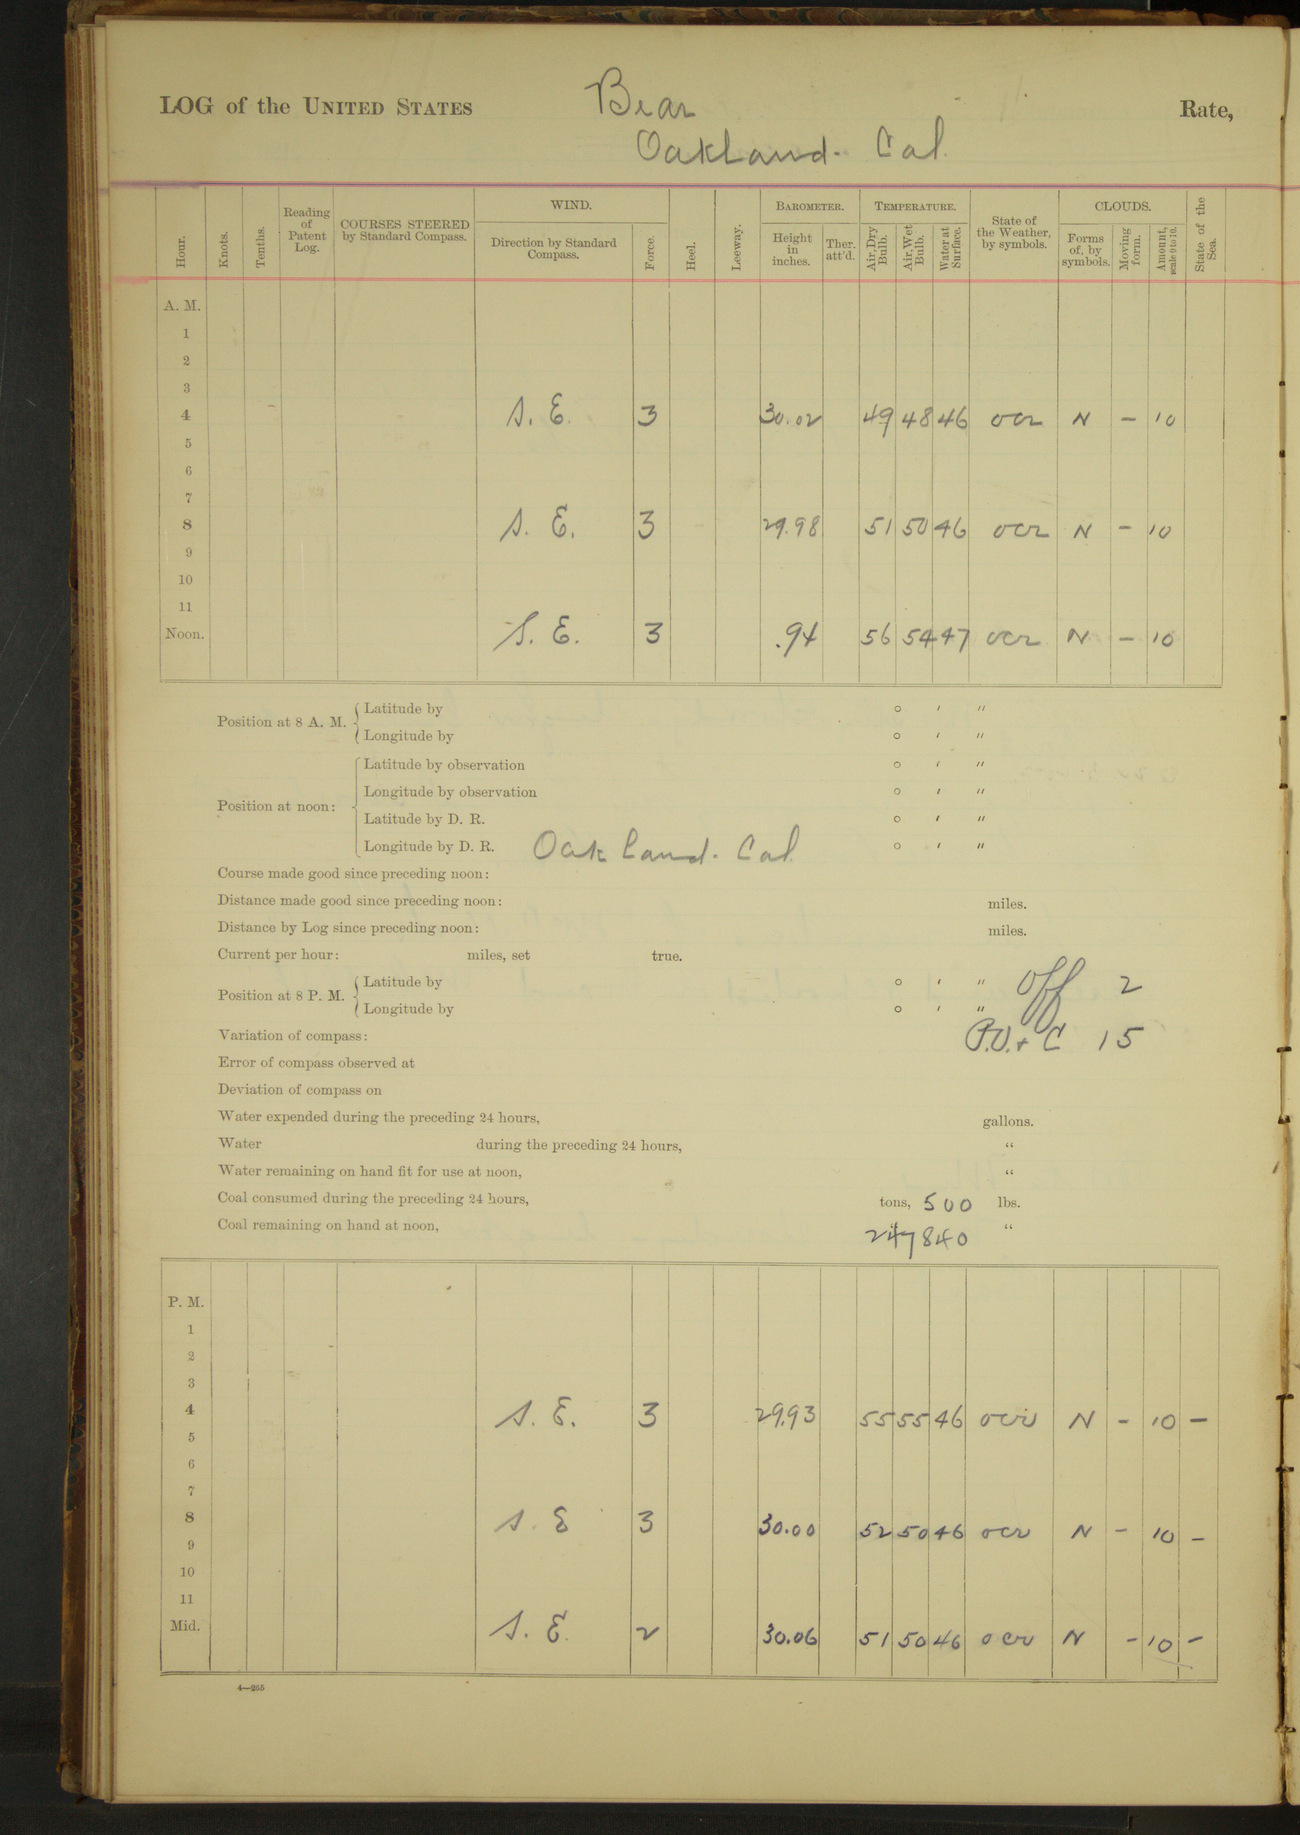 LOG of the UNITED STATES Bear Rate,
Oakland. Cal.
Hour. Knots. Tenths. Reading of Patent Log. COURSES STEERED by Standard Compass. WIND. Direction by Standard Compass. Force. Heel. Leeway. BAROMETER. Height in inches. Ther. att'd. TEMPERATURE. Air, Dry Bulb. Air, Wet Bulb. Water at Surface. State of the Weather, by symbols. CLOUDS. Forms of, by symbols. Moving form. Amount, scale 0 to 10. State of the Sea.
A. M.
1
2
3
4 S. E. 3 30.02 49 48 46 ocr N - 10
5
6
7
8 S. E. 3 29.98 51 50 46 ocr N - 10
9
10
11
Noon. S. E. 3 .94 56 54 47 ocr N - 10
Position at 8 A. M. Latitude by ° ′ ″
Longitude by ° ′ ″
Position at noon: Latitude by observation ° ′ ″
Longitude by observation ° ′ ″
Latitude by D. R. ° ′ ″
Longitude by D. R. Oakland. Cal. ° ′ ″
Course made good since preceding noon:
Distance made good since preceding noon: miles.
Distance by Log since preceding noon: miles.
Current per hour: miles, set true.
Position at 8 P. M. Latitude by ° ′ ″ Off 2
Longitude by ° ′ ″
Variation of compass: P.O. + C 15
Error of compass observed at
Deviation of compass on
Water expended during the preceding 24 hours, gallons.
Water during the preceding 24 hours, “
Water remaining on hand fit for use at noon, “
Coal consumed during the preceding 24 hours, tons, 500 lbs.
Coal remaining on hand at noon, 247840 “
P. M.
1
2
3
4 S. E. 3 29.93 55 55 46 ocr N - 10 -
5
6
7
8 S. E 3 30.00 52 50 46 ocr N - 10 -
9
10
11
Mid. S. E. 2 30.06 51 50 46 ocr N - 10 -
4—265